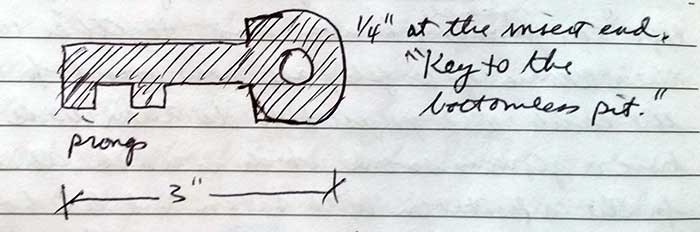 1/4" at the insert end.
"Key to the
bottomless pit."
prongs
3"